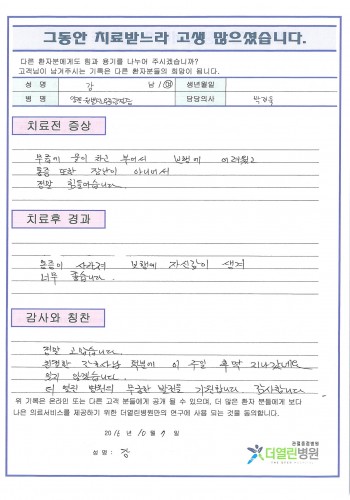 그동안 치료받느라 고생 많으셨습니다.
다른 환자분에게도 힘과 용기를 나누어 주시겠습니까?
고객님이 남겨주시는 기록은 다른 환자분들의 희망이 됩니다.
성 명 강 남 / 여 생년월일
병 명 양측 담당의사 박
치료전 증상
무릎에 물이 차고 부어서 보행에 어려웠고
통증 또한 장난이 아니어서
정말 힘들었습니다.
치료후 경과
통증이 사라져 보행에 자신감이 생겨
너무 좋습니다.
감사와 칭찬
정말 고맙습니다.
친절한 간호사님 덕분에 이 주일 후딱 지나갔네요
잊지 않겠습니다.
더 열린 병원의 무궁한 발전을 기원합니다. 감사합니다
위 기록은 온라인 또는 다른 고객 분들에게 공개 될 수 있으며, 더 많은 환자 분들에게 보다
나은 의료서비스를 제공하기 위한 더열린병원만의 연구에 사용 되는 것을 동의합니다.
10 월 일
성 명 : 강
관절중점병원
더열린병원